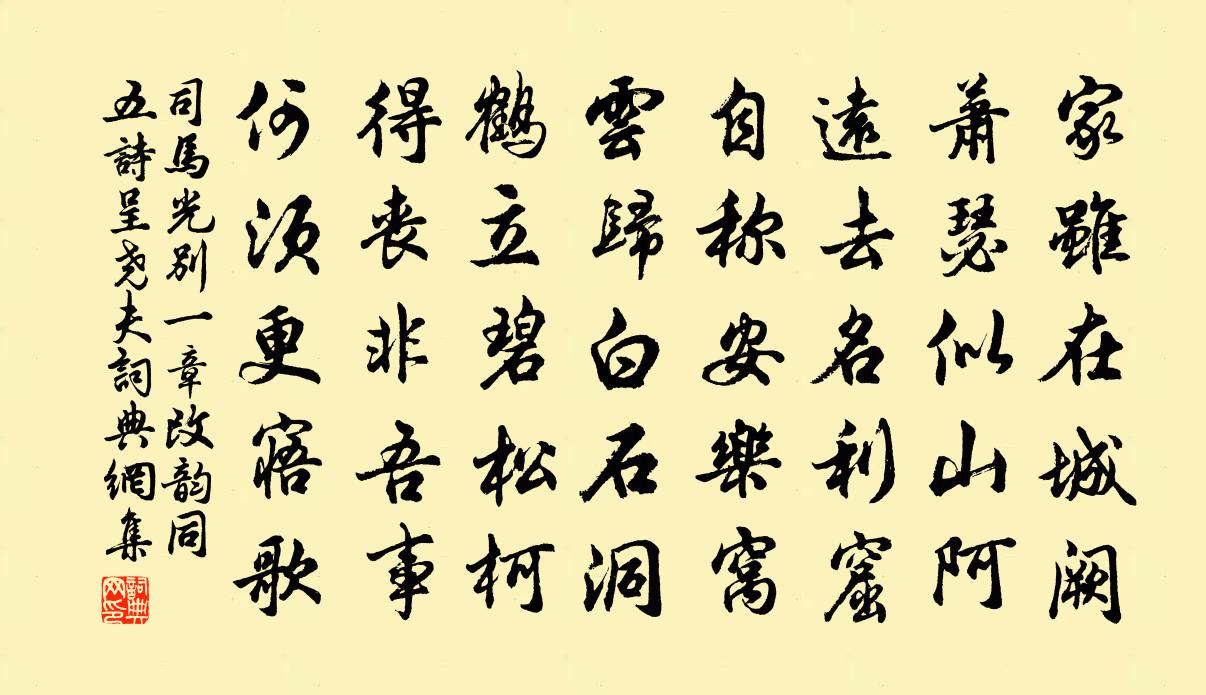 家雖在城阙
蕭瑟似山阿
遠去名利窟
自称安樂窩
雲歸白石洞
鶴立碧松柯
得丧非吾事
何須更寤歌
司馬光别一章改韵同
五詩呈尧夫詞典網集
詞典
网印